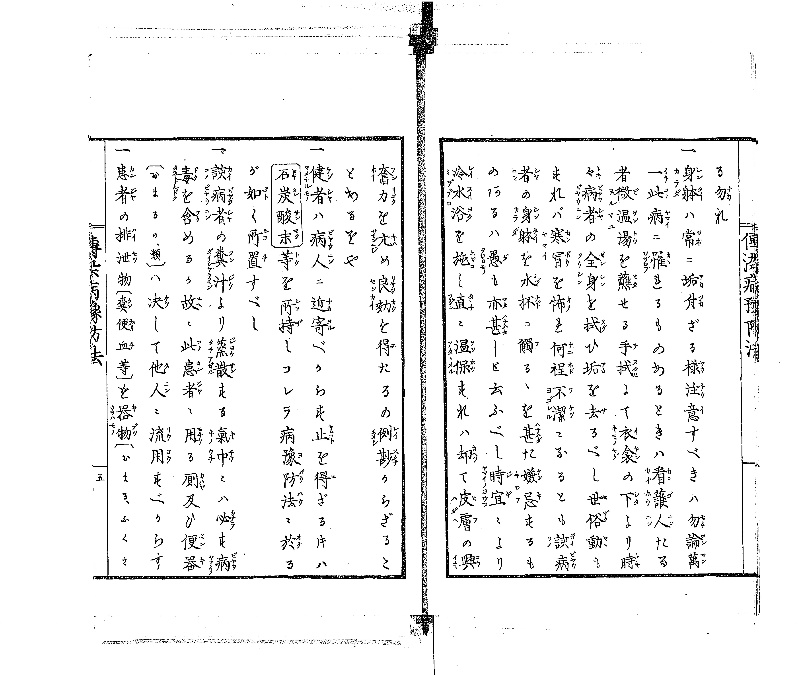 る勿れ
一身躰ハ常ニ垢付ざる様注意すべきハ勿論萬
一此病ニ罹れるものあるときハ看護人たる
者微温湯を蘸せる手拭にて衣衾の下より時
々病者の全身を拭ひ垢を去るべし世俗動も
すれバ寒冒を怖れ何程不潔になるとも該病
者の身躰を水抔ニ觸るゝを甚た嫌忌するも
のあるハ愚も亦甚しと云ふべし時宜により
冷水浴を施し直ニ温保すれハ却て皮膚の興
奮力を尤め良効を得たるの例尠からざるこ
とあるをや
一健者ハ病人ニ近寄べからず止を得ざる片ハ
石炭酸末等を所持しコレラ病豫防法ニ於る
が如く所置すべし
一該病者の糞汁より蒸散する氣中にハ必ず病
毒を含める故ニ此患者ニ用る厠及ひ便器
(おまるの類)ハ決して他人ニ流用すべからす
一患者の排泄物(糞便血等)を器物(おまる、ふくさ
傳染病豫防法
五